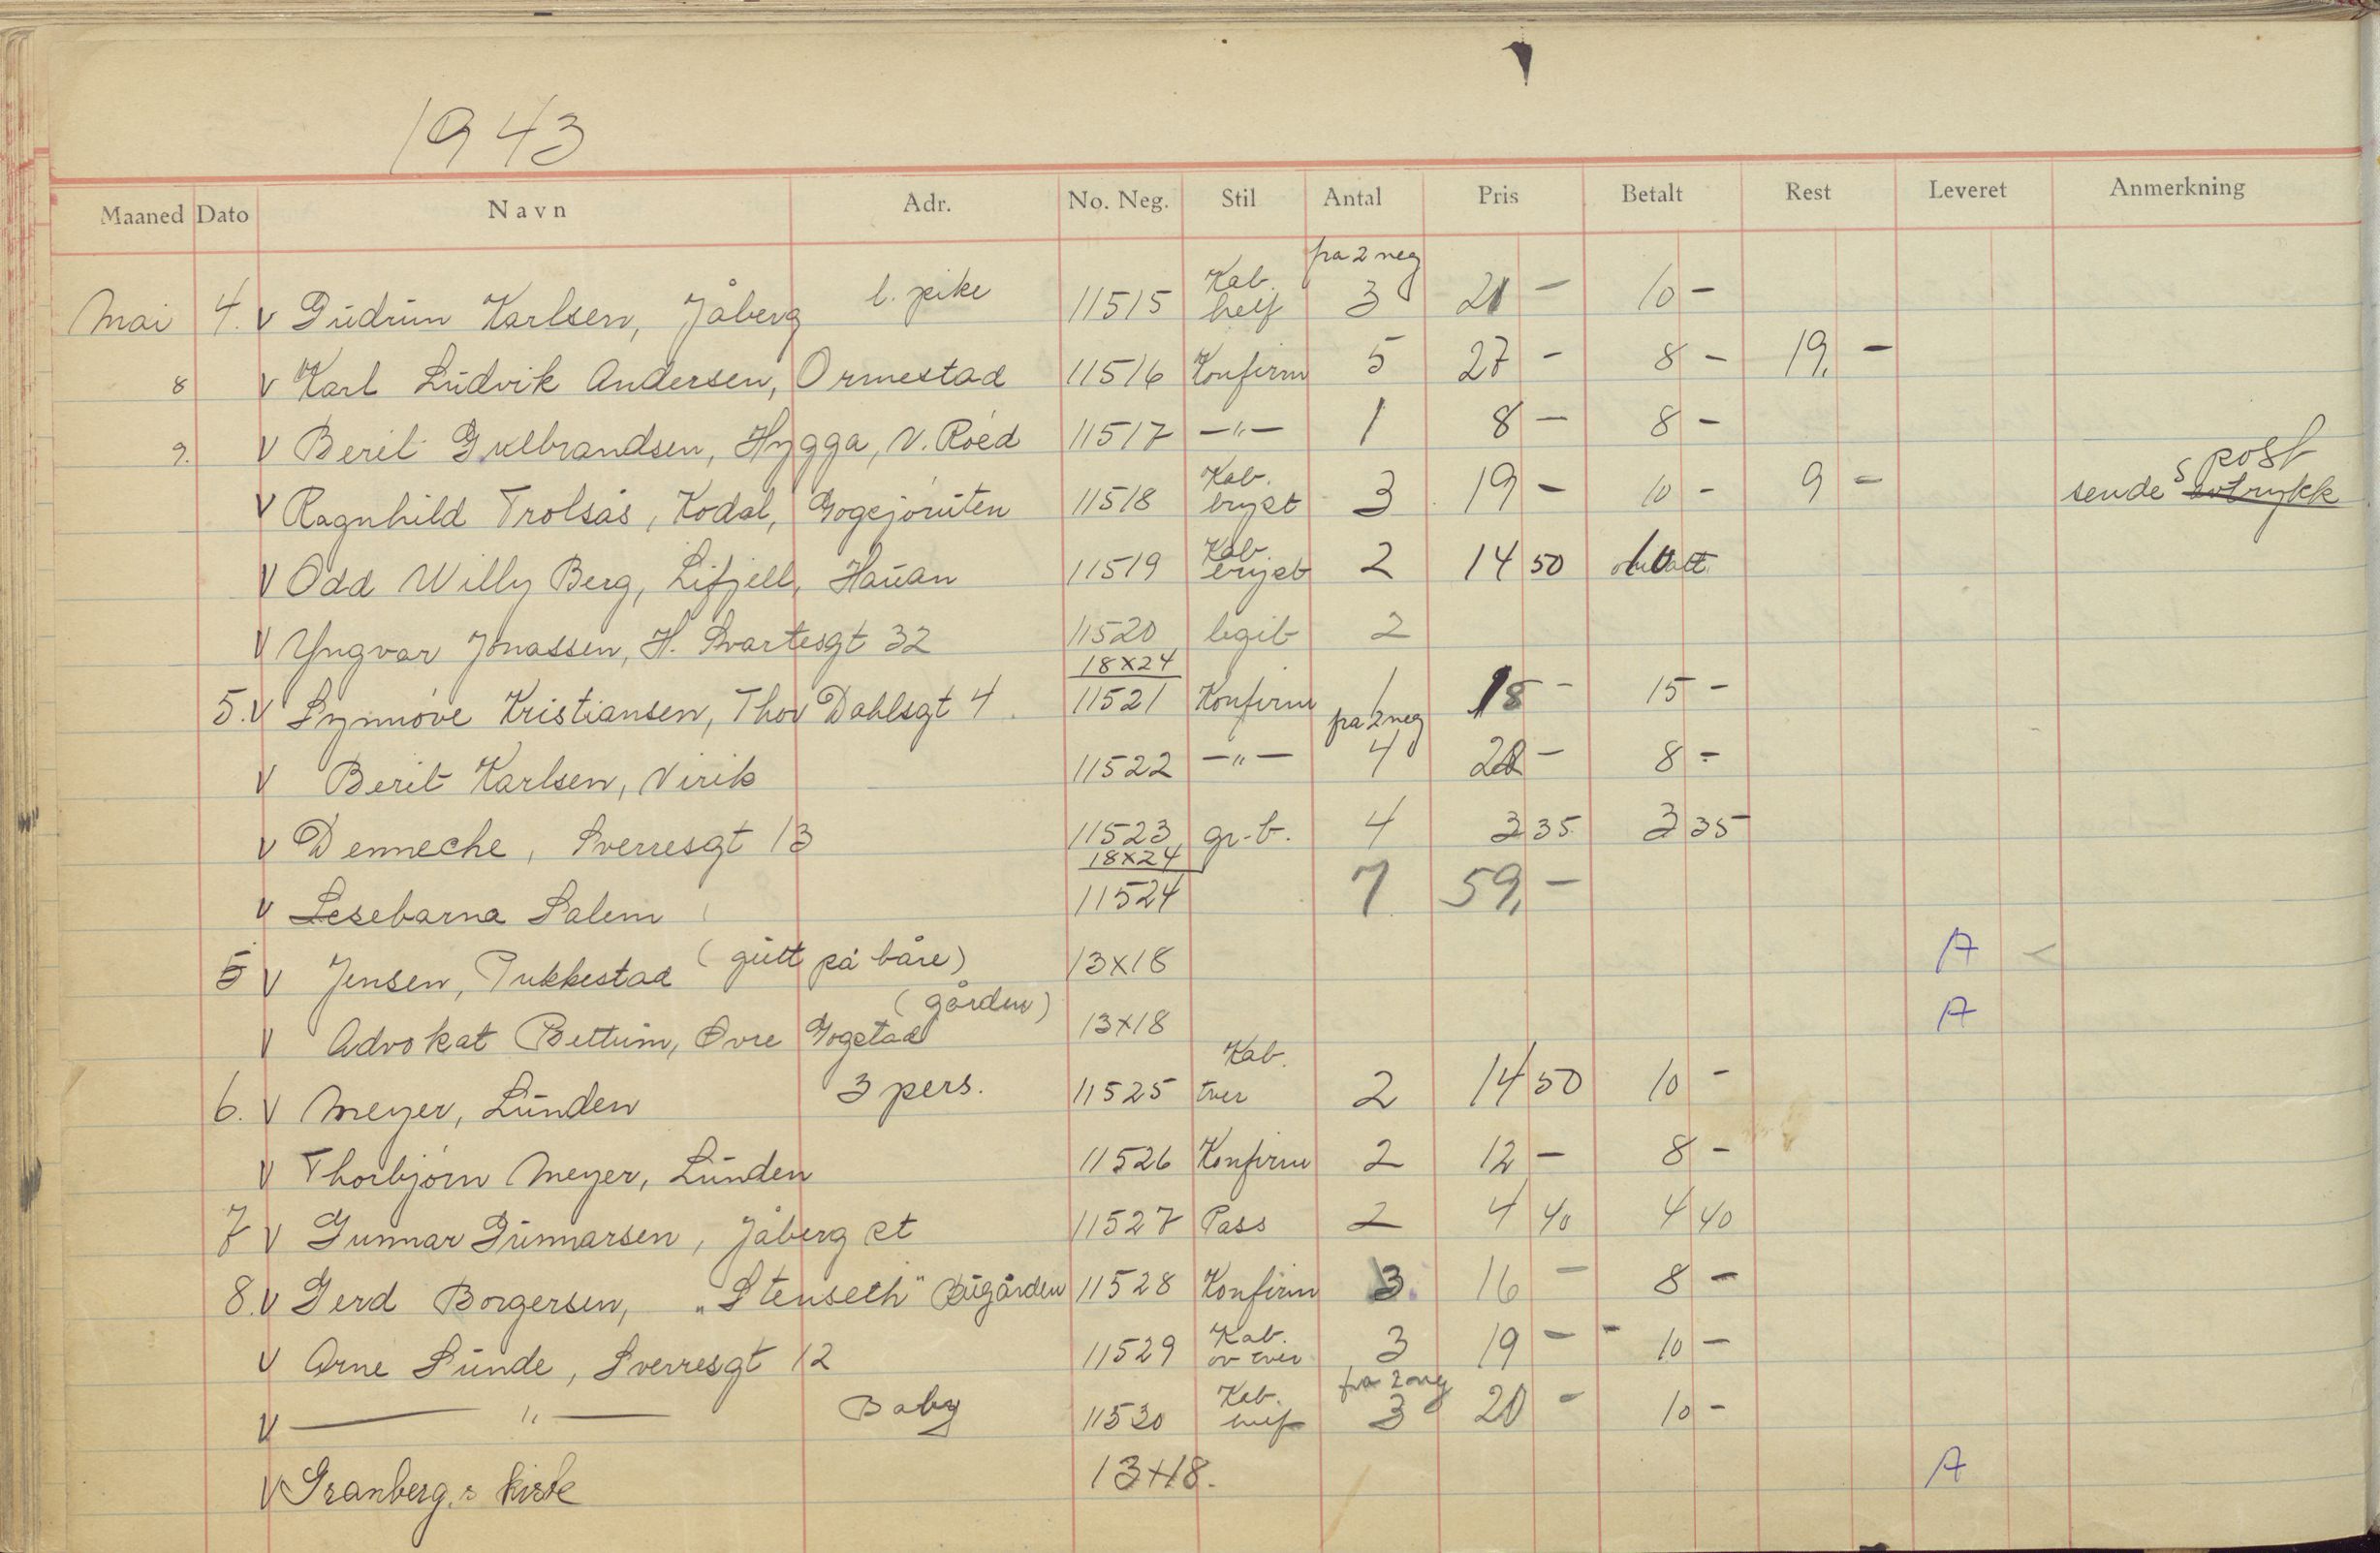 1943
Maaned Dato Navn Adr. No. Neg. Stil Antal Pris Betalt Rest Leveret Anmerkning
Mai 4. V Gudrun Karlsen, Jåberg l. pike 11515 Kab. helf fra 2 neg 3 21 - 10 -
8 V Karl Ludvik Andersen, Ormestad 11516 Konfirm 5 27 - 8 - 19, -
9. V Berit Gulbrandsen, Hygga, V. Röed 11517 -"- 1 8 - 8 -
V Ragnhild Trolsås, Kodal, Gogejöruten 11518 Kab. bryst 3 19 - 10 - 9 - sendes post avtrykk
V Odd Willy Berg, Lifjell, Hauan 11519 Kab. bryst 2 14 50
V Yngvar Jonassen, H. Svartesgt 32 11520 legit 2
18x24
5. V Synnöve Kristiansen, Thor Dahlsgt 4. 11521 Konfirm 1 18 - 15 -
V Berit Karlsen, Virik 11522 -"- fra 2 neg 4 - 8 -
V Denneche, Sverresgt 13 11523 gr.b. 4 3 35 3 35
18x24
V Lesebarna Salem 11524 7 59, -
5 V Jensen, Pukkestad (gutt på båre) 13x18 A
V Advokat Bettum, Övre Gogstad (gården) 13x18 A
6. V Meyer, Lunden 3 pers. 11525 Kab. tver 2 14 50 10 -
V Thorbjörn Meyer, Lunden 11526 Konfirm 2 12 - 8 -
7 V Gunnar Gunnarsen, Jåberg st 11527 Pass 2 4 40 4 40
8. V Gerd Borgersen, „Stenseth" Bugården 11528 Konfirm 3. 16 - 8 -
V Arne Sunde, Sverresgt 12 11529 Kab. ov tver 3 19 - - 10 -
V -"- Baby 11530 Kab. helf fra 2 neg 3 20 - 10 -
V Granberg.s kiste 13x18. A